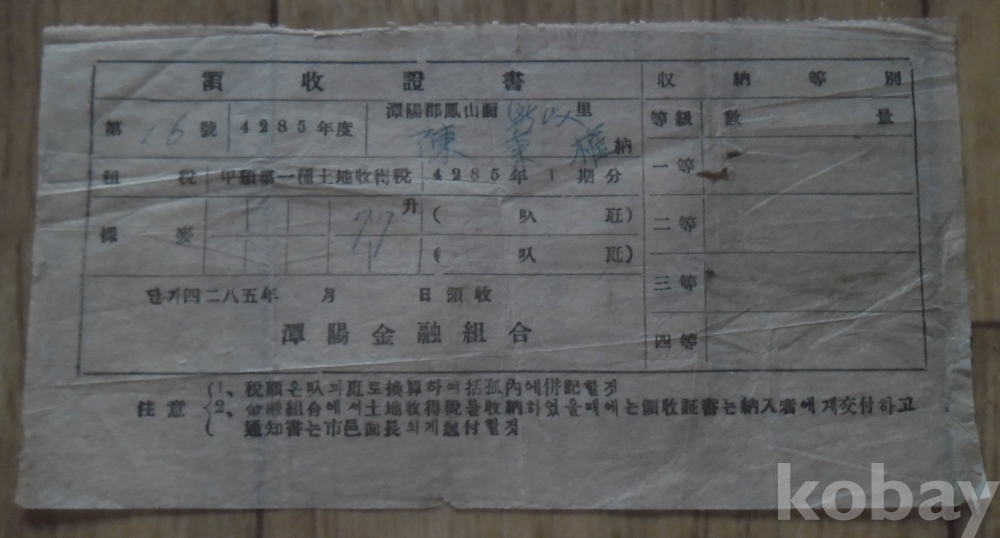 領收證書
第 16 號 4285年度 潭陽郡鳳山面 里
陳 權 納
租稅 甲類第一種土地收得稅 4285年1期分
裸麥 77 升 ( 叺 瓩)
( 叺 瓩)
단기四二八五年 月 日領收
潭陽金融組合
収納等別
等級 數量
一等
二等
三等
四等
注意
1、稅額은叺과瓩로換算하여括孤內에併記할것
2、金融組合에서土地收得稅를收納하였을때에는領收証書는納入者에게交付하고
通知書는市邑面長의게送付할것
kobay